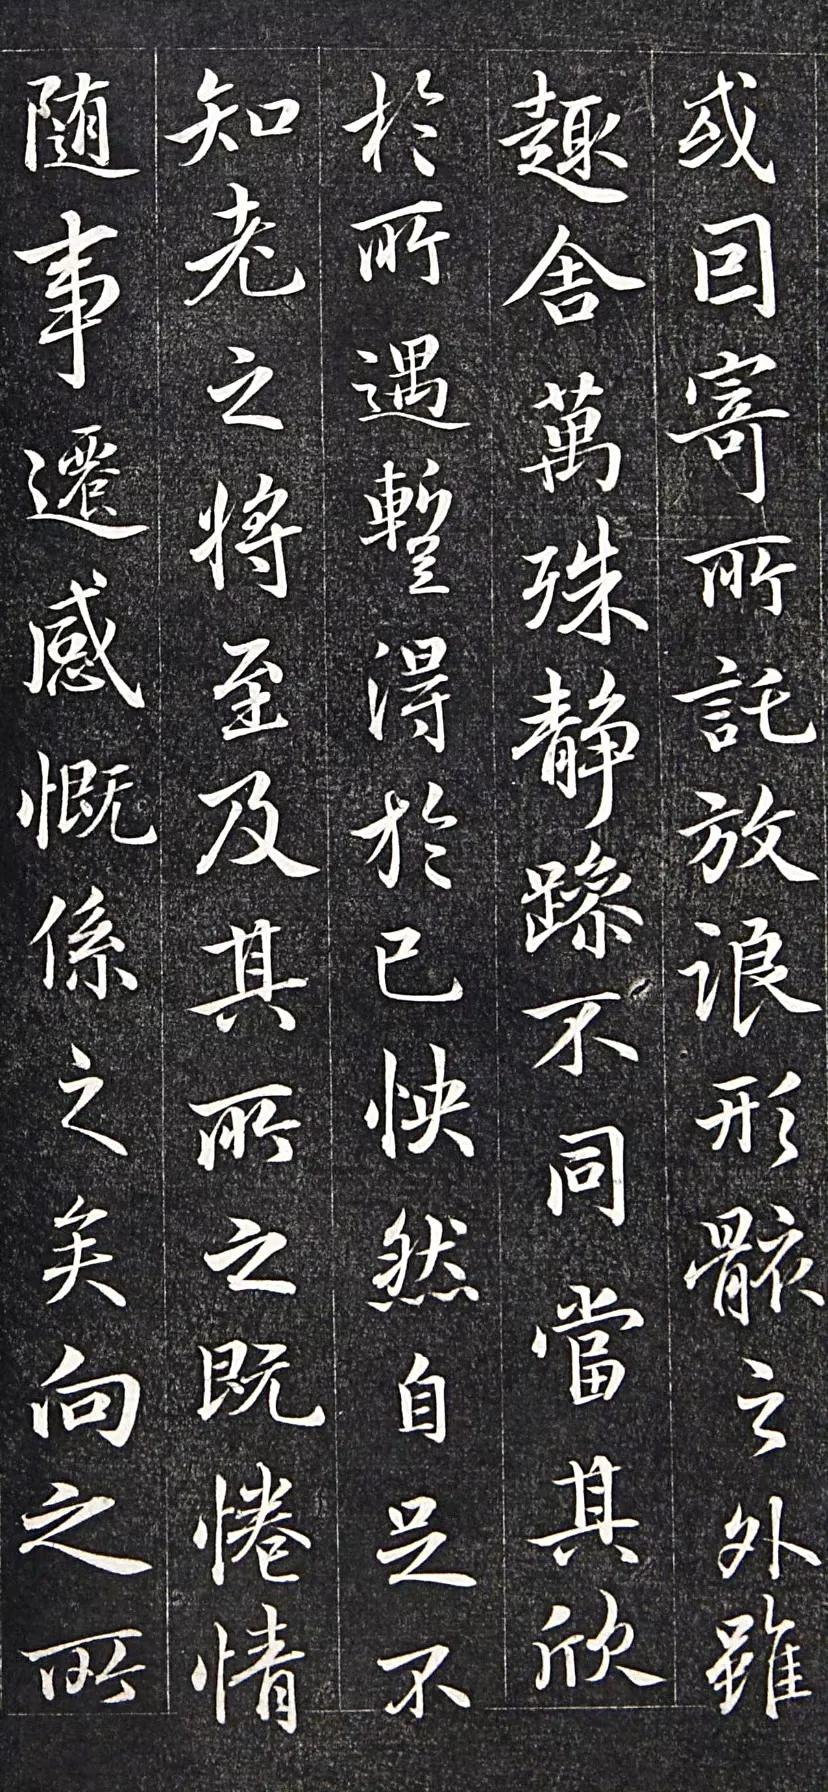 或因寄所託放浪形骸之外雖
趣舍萬殊静躁不同當其欣
於所遇暫得於己怏然自足不
知老之將至及其所之既惓情
随事遷感慨係之矣向之所